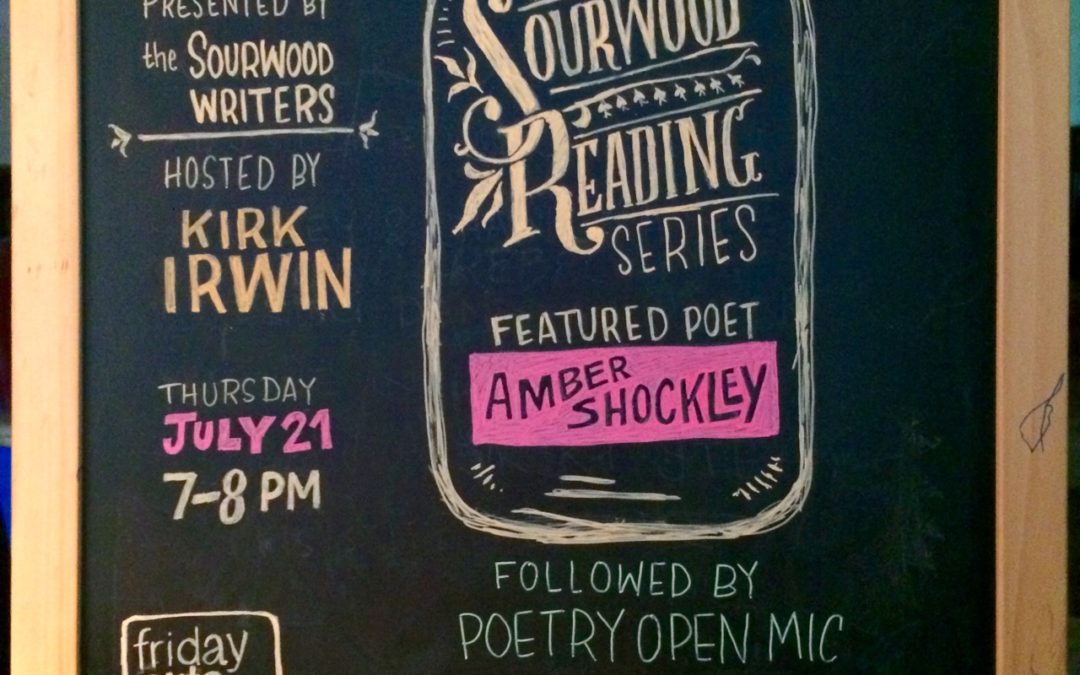 PRESENTED BY
the SOURWOOD
WRITERS
HOSTED BY
KIRK
IRWIN
THURSDAY
JULY 21
7-8 PM
friday
SOURWOOD
READING
SERIES
FEATURED POET
AMBER
SHOCKLEY
FOLLOWED BY
POETRY OPEN MIC